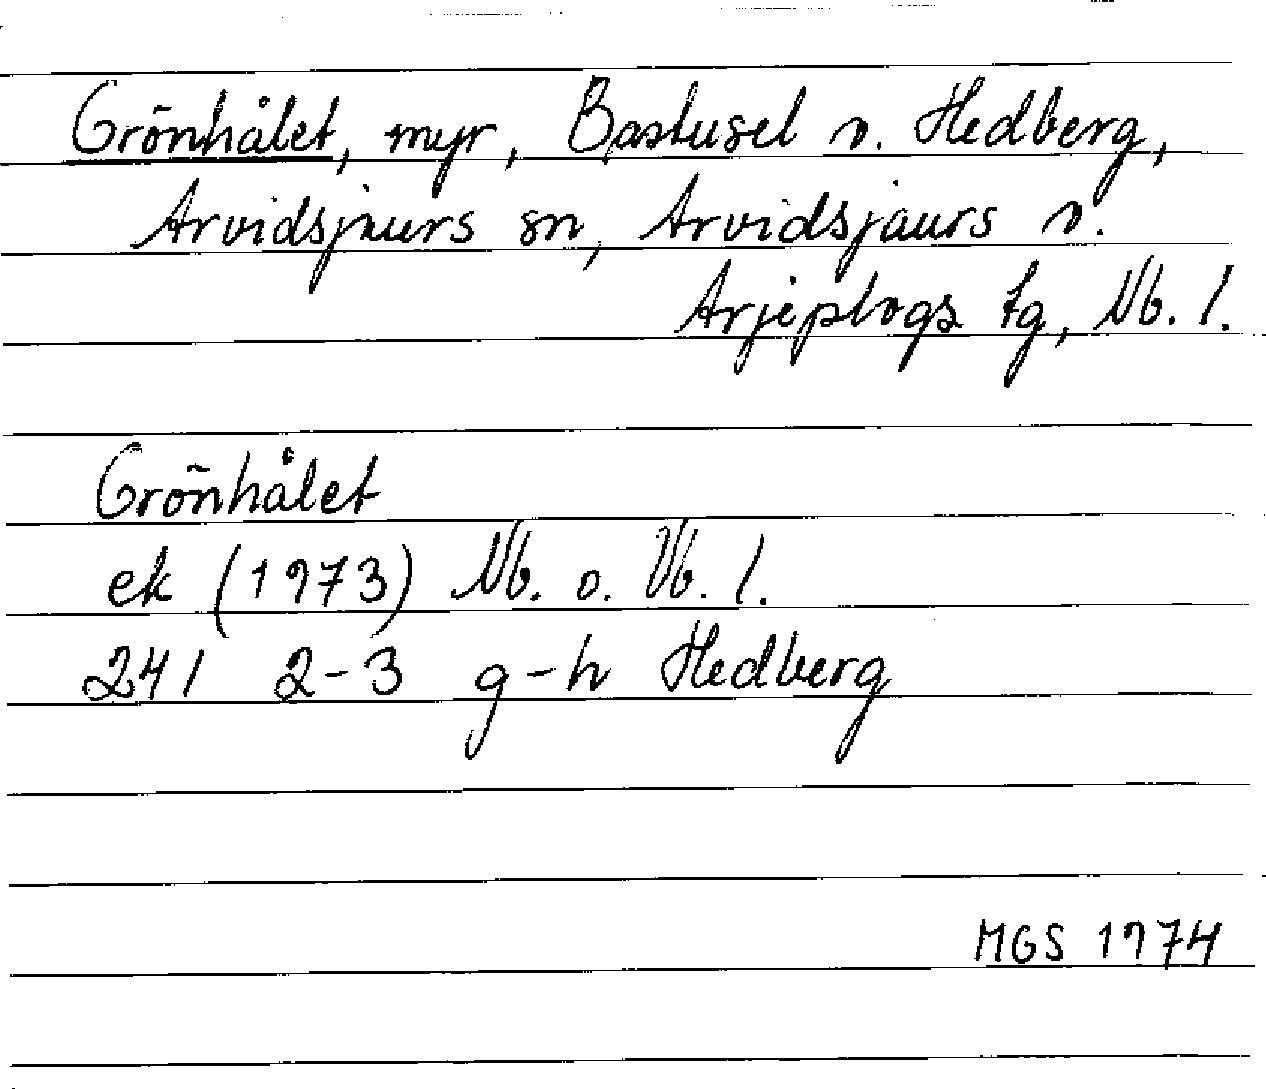 Grönhålet, myr, Bastusel o. Hedberg,
Arvidsjaurs sn, Arvidsjaurs o.
Arjeplogs tg, Nb. l.
Grönhålet
ek (1973) Nb. o. Vb. l.
241 2-3 g-h Hedberg
MGS 1974